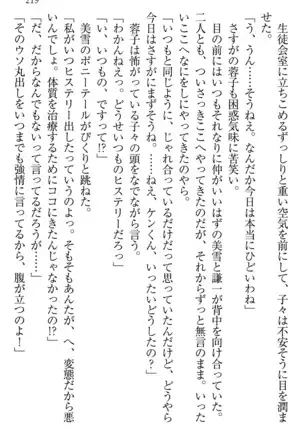 219
生徒会室を前にして、子々が不安そうに目を潤ま
せた。
「う、うん……そうねえ。なんだか今日は本当にひどいわね」
さすがの蓉子も困惑気味に苦笑い。
目の前にはいつもそれなりに仲がいいはずの美雪と謙一が背中を向け合っていた。
二人とも、ついさっきここへやってきたのだが、それからずっと無言のまま。いった
いなにをしにやってきたのやら。
「いつもと同じように、じゃれ合いしているだけだって思っていたんだけど、どうやら
今日はさすがにまずそうね。……ねえ、ケンくん、いったいどうしたの？」
蓉子は怖がっている子々の頭をなでながら尋ねた。
「わかんねえっ。どうせいつものヒステリーだろっ」
「い、いつもの、ですって!?」
美雪のポニーテールがぴくりと跳ねた。
「私がいつヒステリー出したっていうのよっ。そもそもあんたが、へ、変態だから悪
いんでしょっ。体質を治療するためにココにきたんじゃなかったの!?」
「だ、だからなんでもないって言ってるだろうが……」
「そのウソ丸出しをいつまでも強情に言ってるから、腹が立つのよ！」